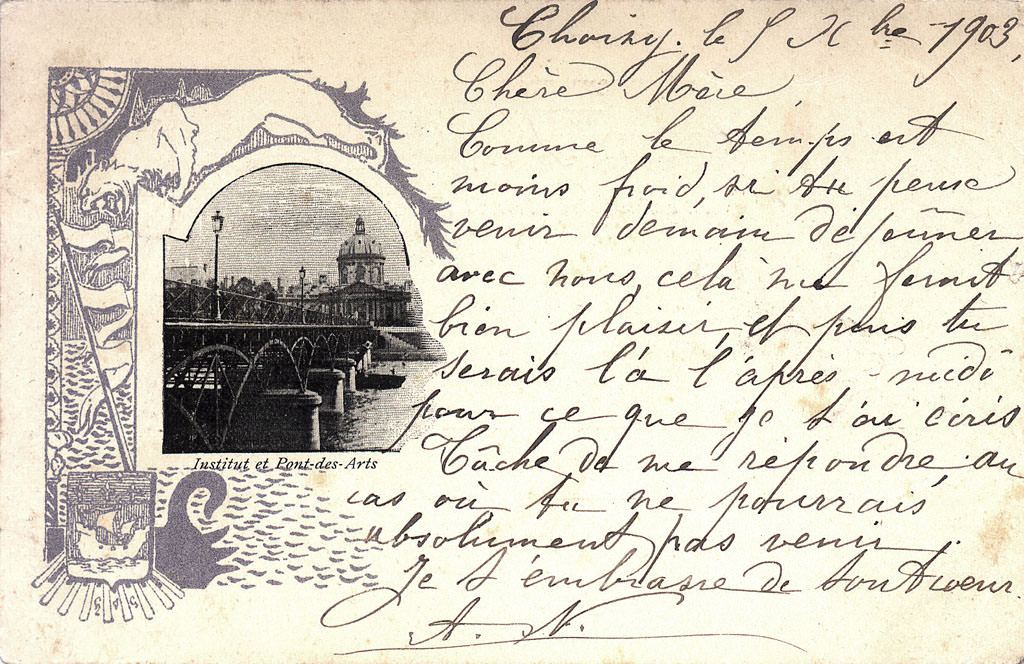 Choisy. le 5 Xbre 1903.
Chère Mère,
Comme le temps est
moins froid, si tu peux
venir demain déjeûner
avec nous, cela me ferait
bien plaisir, et puis tu
serais là l'après-midi
pour ce que je t'ai écris
Tâche de me répondre au
cas où tu ne pourrais
absolument pas venir.
Je t'embrasse de tout coeur.
A. N.
Institut et Pont-des-Arts